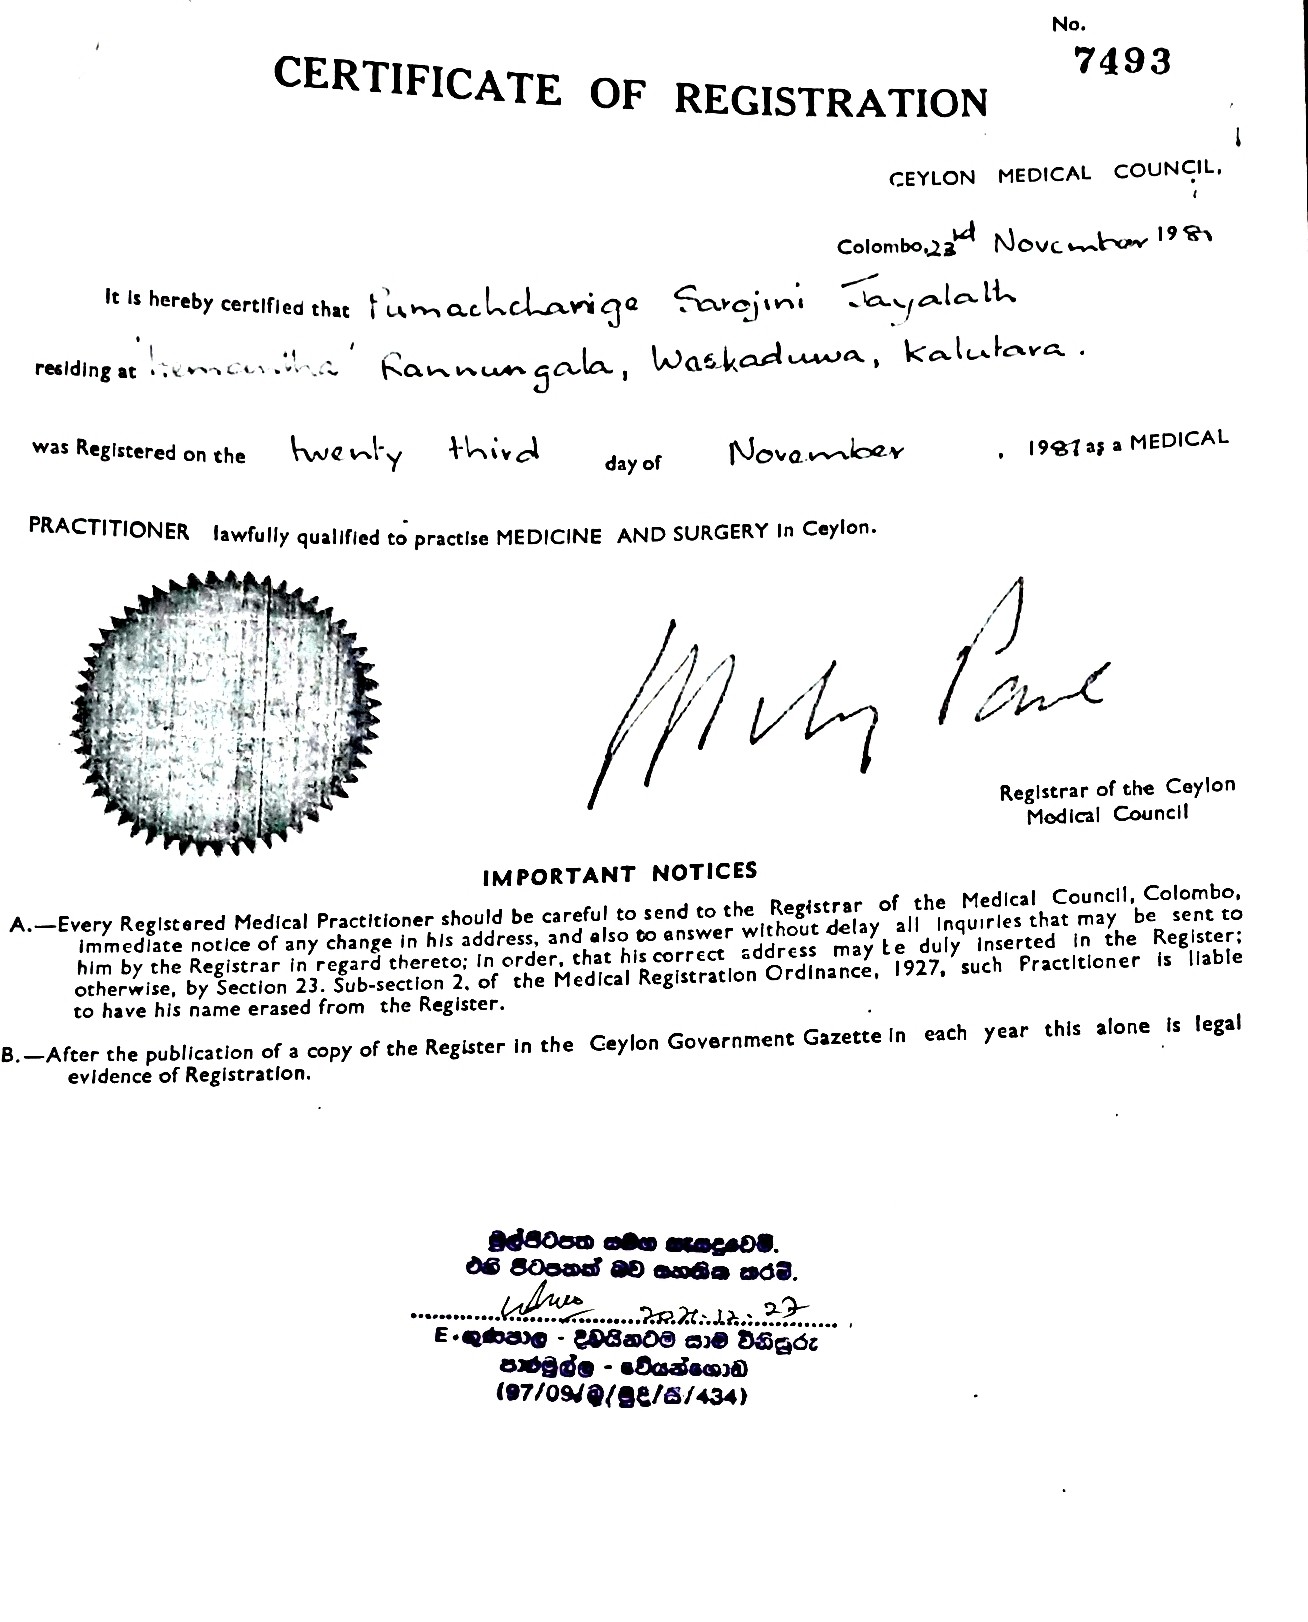 No.
7493
CERTIFICATE OF REGISTRATION
CEYLON MEDICAL COUNCIL,
Colombo, 23rd November 1981
It is hereby certified that Sarojini Jayalath
residing at Rannungala, Waskaduwa, Kalutara.
was Registered on the twenty third day of November , 1981 as a MEDICAL
PRACTITIONER lawfully qualified to practise MEDICINE AND SURGERY in Ceylon.
Registrar of the Ceylon
Medical Council
IMPORTANT NOTICES
A.—Every Registered Medical Practitioner should be careful to send to the Registrar of the Medical Council, Colombo,
immediate notice of any change in his address, and also to answer without delay all inquiries that may be sent to
him by the Registrar in regard thereto; in order, that his correct address may be duly inserted in the Register;
otherwise, by Section 23. Sub-section 2. of the Medical Registration Ordinance, 1927, such Practitioner is liable
to have his name erased from the Register.
B.—After the publication of a copy of the Register in the Ceylon Government Gazette in each year this alone is legal
evidence of Registration.
මුල්පිටපත සමග සැසඳුවෙමි.
එහි පිටපතක් බව සහතික කරමි.
E. ගුණපාල - දිවයිනටම සාම විනිසුරු
(97/09/
/434)